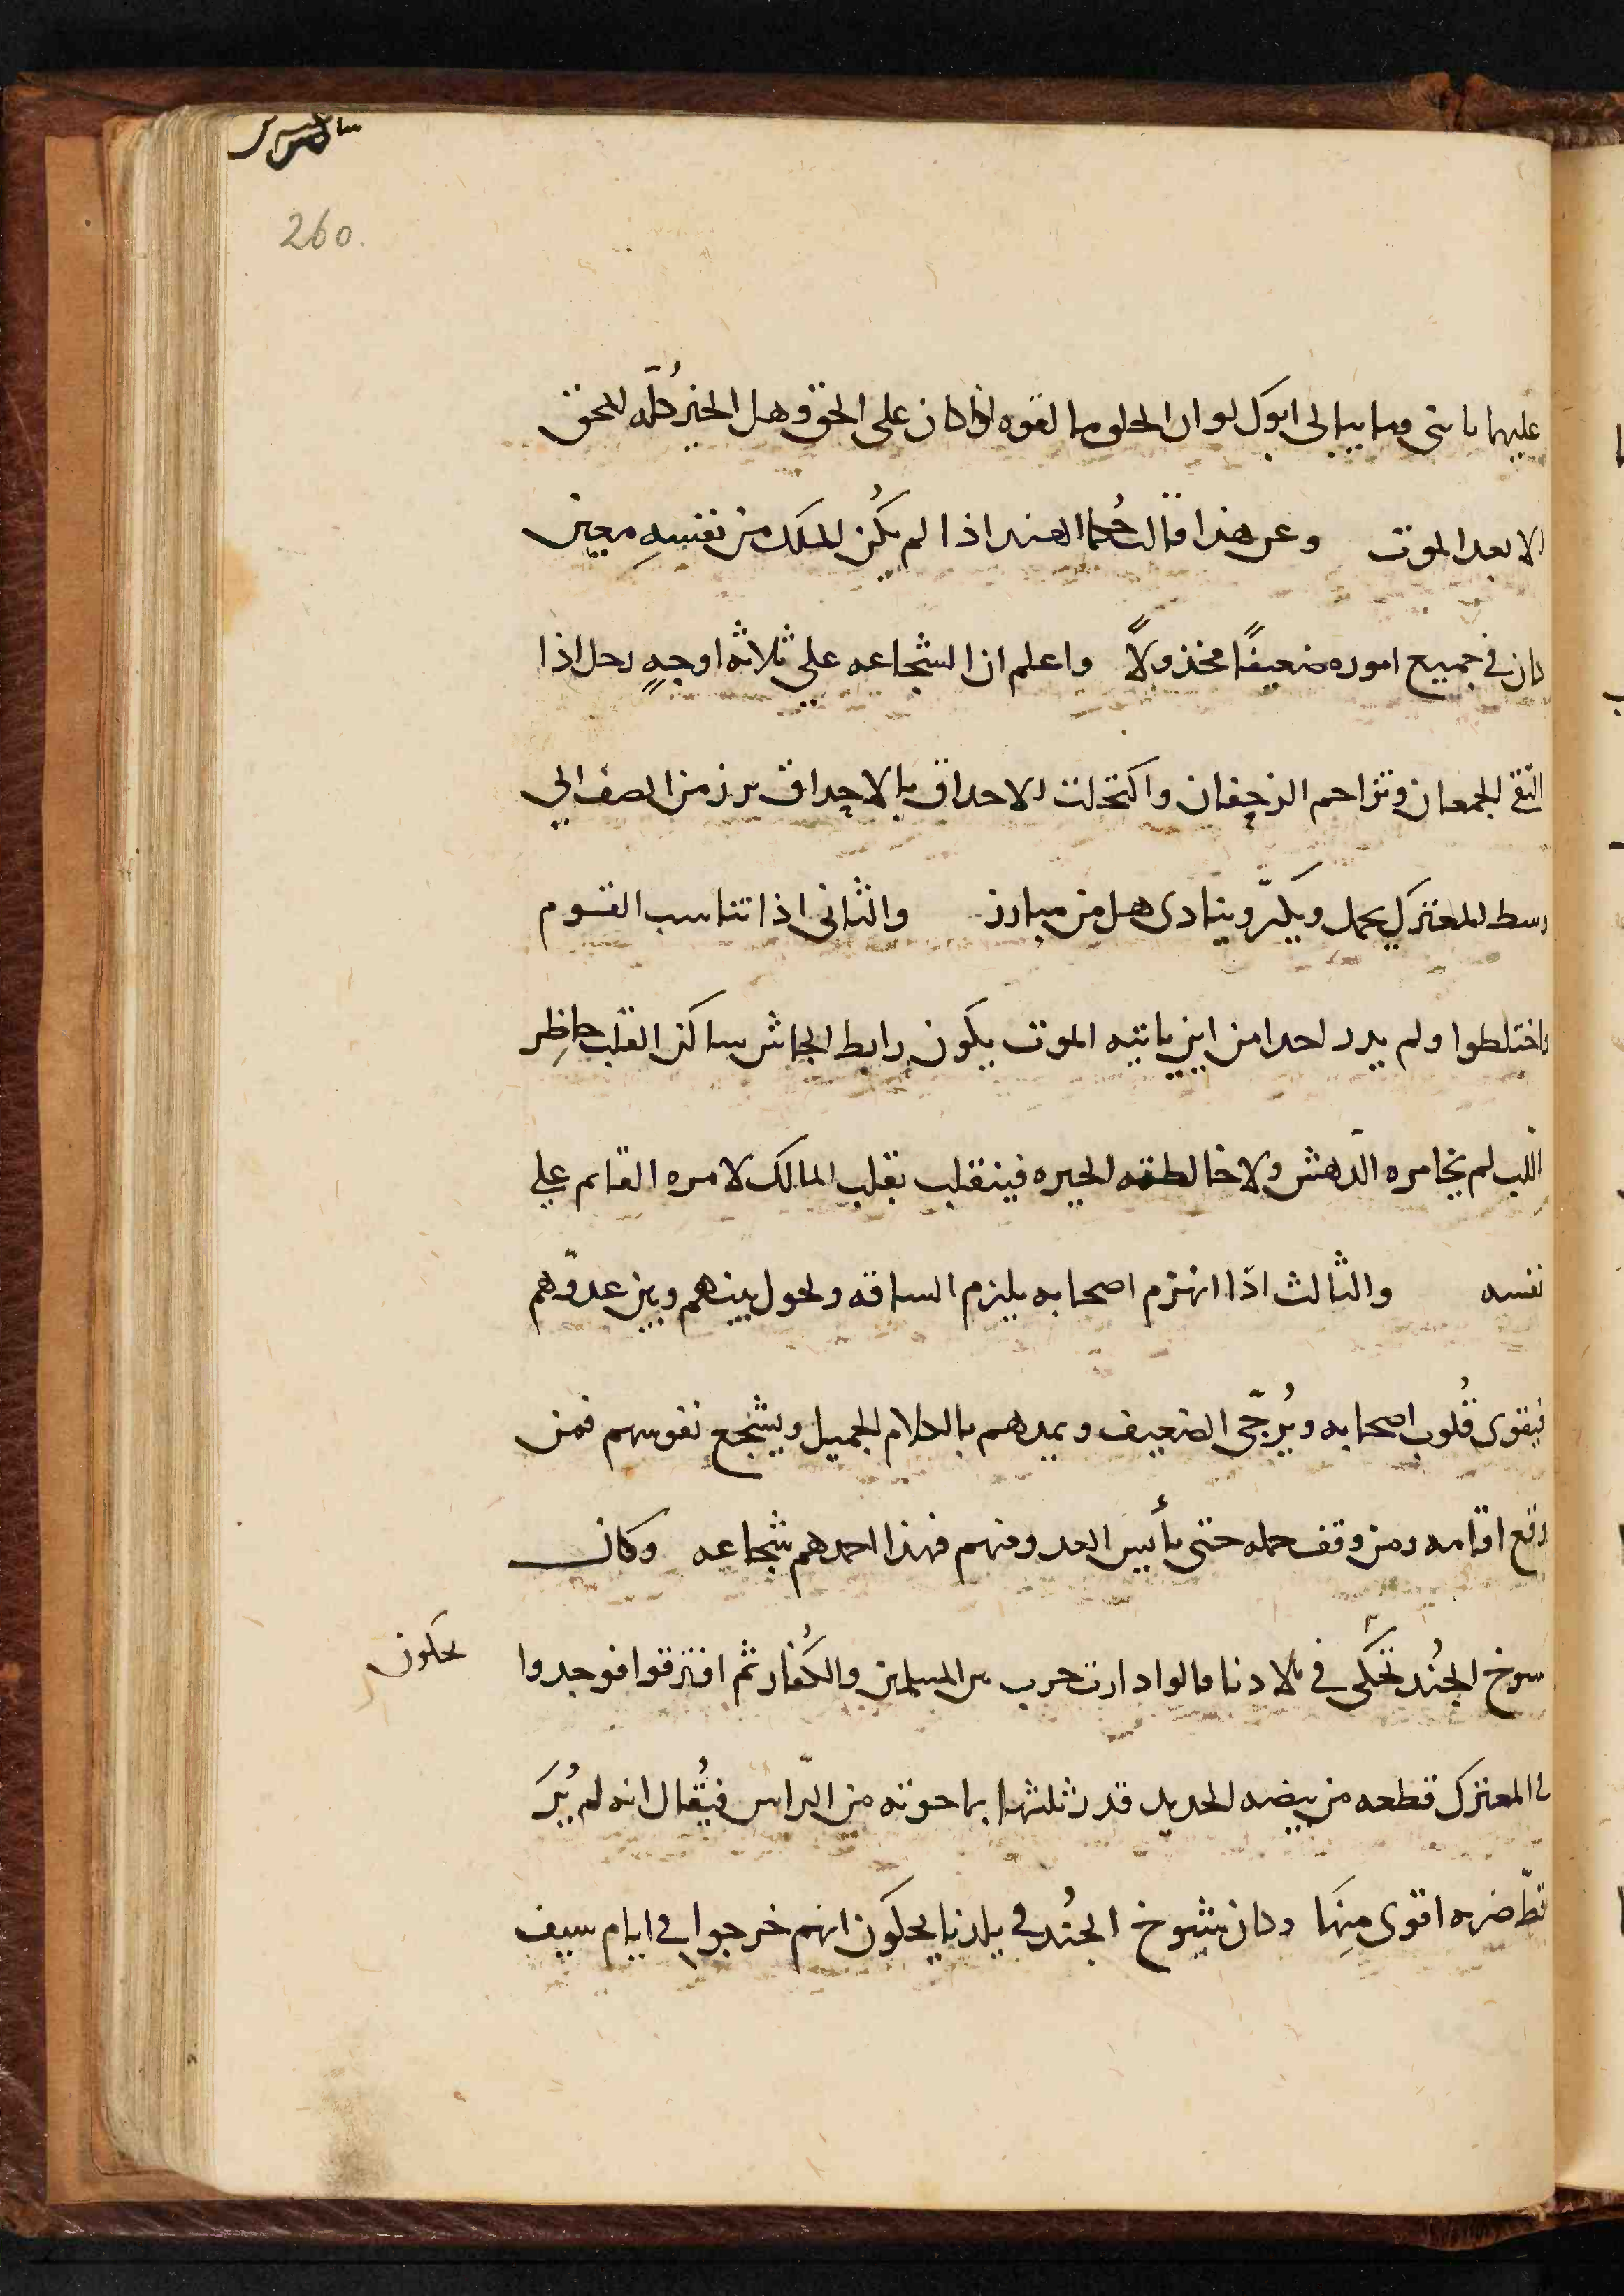 260.
عليها يا بنى وما يبالى ابوك لو ان الخلق ما لقوه اذا كان على الحق وهل الخير كُلّه للمحق
الا بعد الموت وعن هذا قالت حُكما الهند اذا لم يكُن للملك من نفسِهِ معين
كان في جميع اموره ضعيفًا مخذولًا واعلم ان الشجاعه علي ثلاثه اوجهٍ رجل اذا
التقى الجمعان وتزاحم الزحفان واكتحلت الاحداق بالاحداق برز من الصف الي
وسط المعترك يحمل ويكرّ وينادى هل من مبارز والثانى اذا تناسب القوم
واختلطوا ولم يدر احدا من اين ياتيه الموت يكون رابط الجاش ساكن القلب حاضِر
اللب لم يخامره الدّهش ولا خالطته الحيره فينقلب تقلب المالك لامره القايم علي
نفسه والثالث اذا انهزم اصحابه يلزم الساقه ويحول بينهم وبين عدوّهم
فيقوى قُلوب اصحابه ويُرجّى الضعيف ويمدهم بالكلام الجميل ويشجع نفوسهم فمن
وقع اقامه ومن وقف حمله حتى يأيس العدو منهم فهذا احمدهم شجاعه وكان
سوخ الجُند تحكى في بلادنا قالوا دارت حرب بين المسلمين والكُفار ثم افترقوا فوجدوا
يحكون
في المعترك قطعه من بيضه الحديد قدر ثلثها بما حوته من الرّاس فيُقال انه لم يُرَ
قطّ ضربه اقوى مِنهَا وكان شيوخ الجُند في بلدنا يحكون انهم خرجوا في ايام سيف